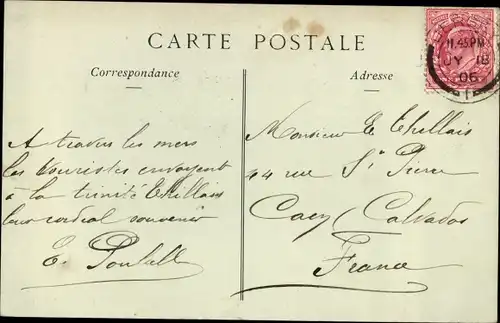 CARTE POSTALE
Correspondance
Adresse
11.45PM
JY 18
06
A travers les mers
les touristes envoyent
à la trinité Thillais
leur cordial souvenir
E.
Monsieur E Thillais
44 rue St Pierre
Caen (Calvados
France